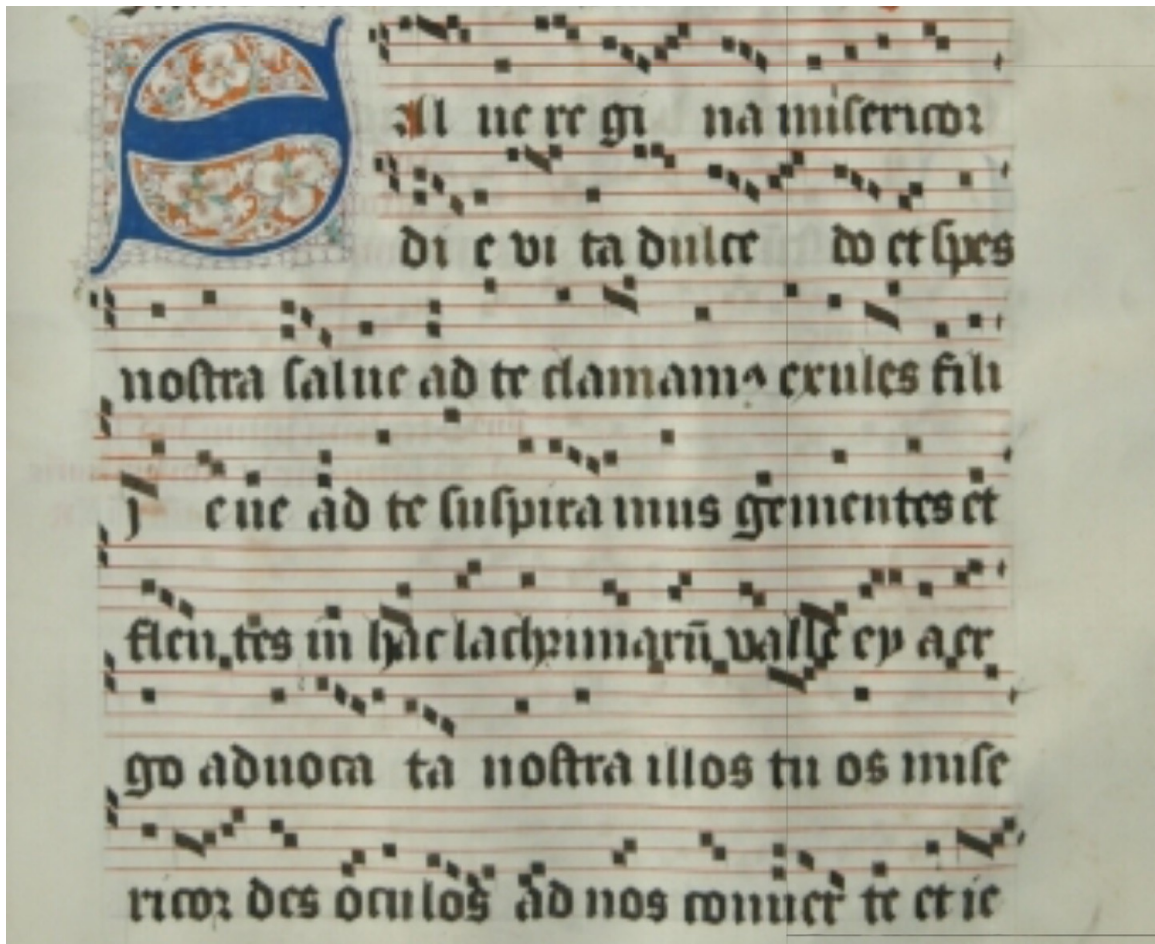 Sal ue re gi na misericor
di e vi ta dulce do et spes
nostra salue ad te clamam⁹ exules fili
j eue ad te suspira mus gementes et
flen tes in hac lachrimarū valle ey a er
go aduoca ta nostra illos tu os mise
ricor des oculos ad nos conuer te et ie